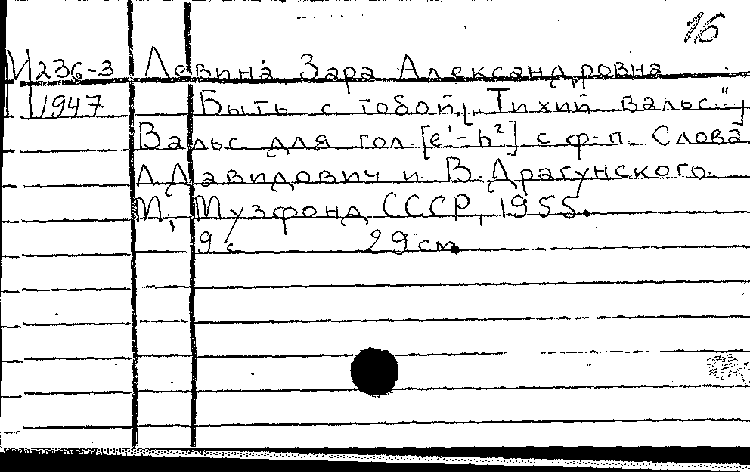 16
М 236-3 Левина Зара Александровна
1947 Быть с тобой. [„Тихий вальс"]
Вальс для гол. [e¹-h²] с ф-п. Слова
Л. Давидович и В. Драгунского.
М., Музфонд СССР, 1955.
9 с. 29 см.